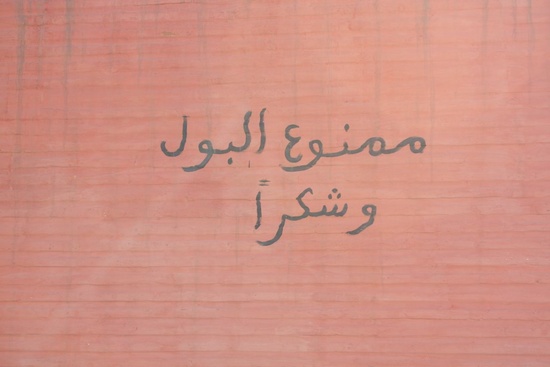 ممنوع البول
وشكراً